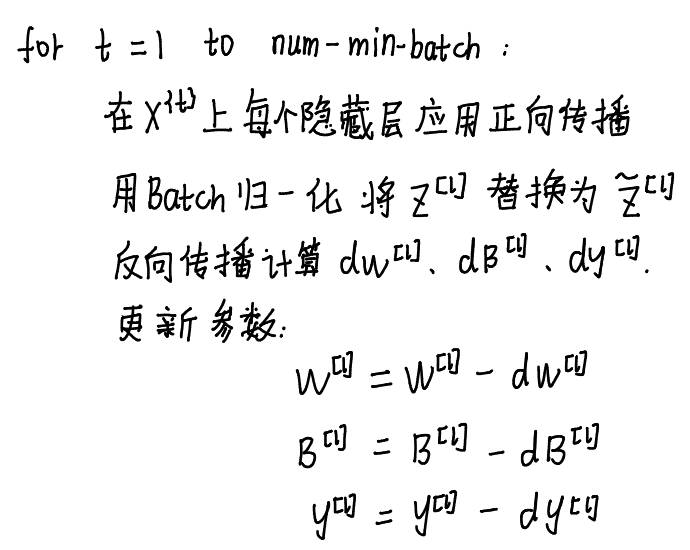 for t = 1 to num-min-batch :
在 X^{t} 上每个隐藏层应用正向传播
用Batch归一化将 Z^[l] 替换为 Z̃^[l]
反向传播计算 dw^[l]、dB^[l]、dy^[l].
更新参数:
W^[l] = W^[l] - dw^[l]
B^[l] = B^[l] - dB^[l]
y^[l] = y^[l] - dy^[l]